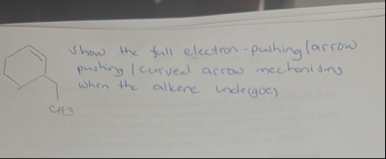 Show the full electron-pushing/arrow
pushing/curved arrow mechanisms
when the alkene undergoes
CH3